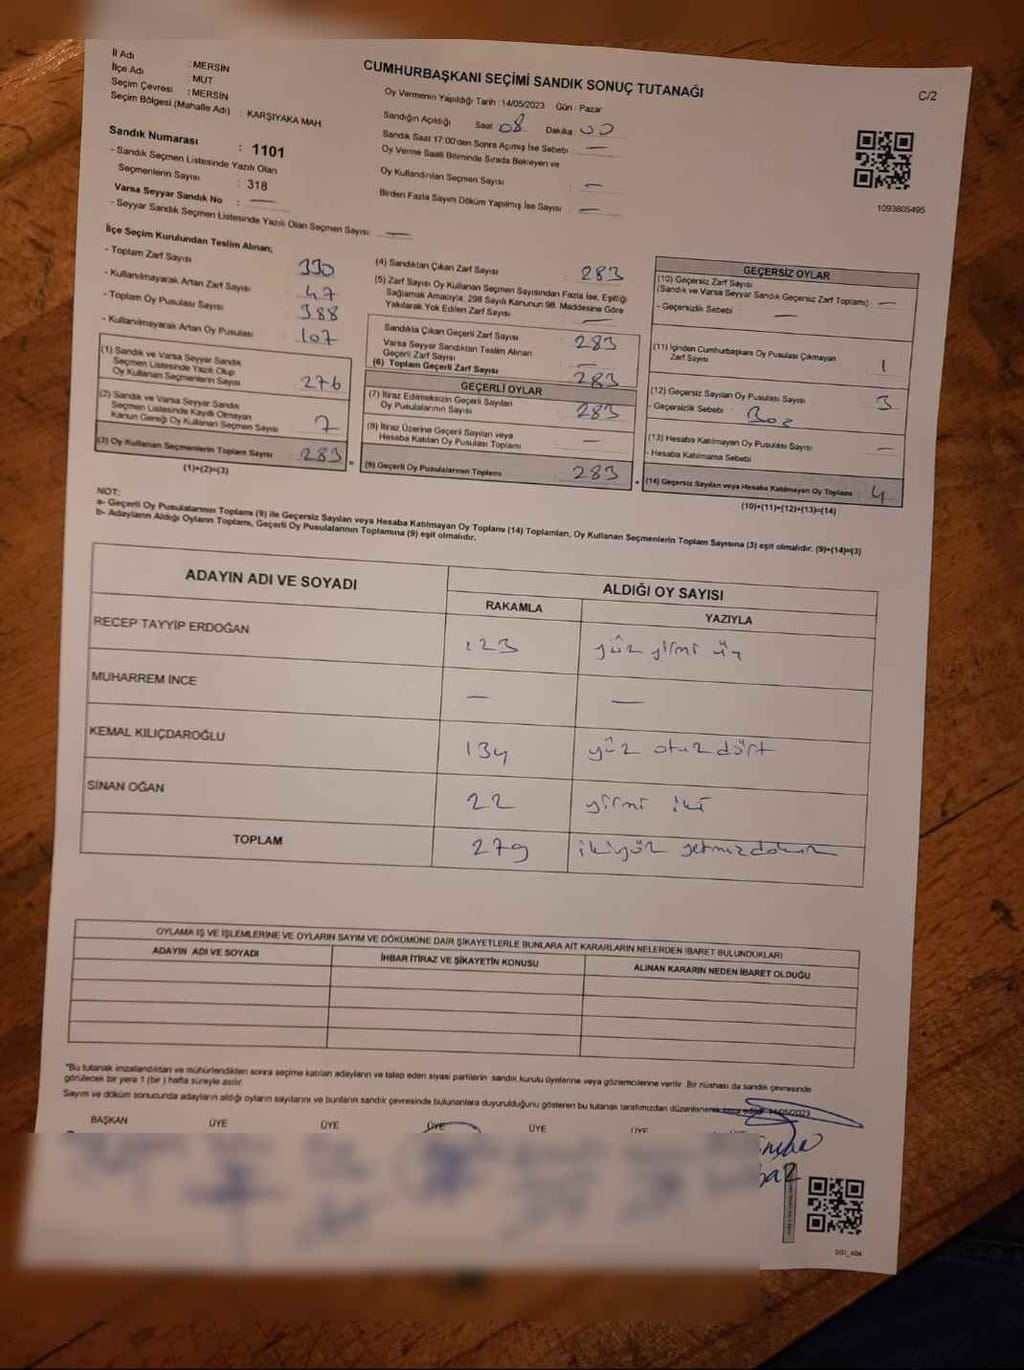 CUMHURBAŞKANI SEÇİMİ SANDIK SONUÇ TUTANAĞI
C/2
İl Adı : MERSİN
İlçe Adı : MUT
Seçim Çevresi : MERSİN
Seçim Bölgesi (Mahalle Adı) : KARŞIYAKA MAH.
Sandık Numarası : 1101
- Sandık Seçmen Listesinde Yazılı Olan
Seçmenlerin Sayısı : 318
Varsa Seyyar Sandık No : —
- Seyyar Sandık Seçmen Listesinde Yazılı Olan Seçmen Sayısı: —
Oy Vermenin Yapıldığı Tarih : 14/05/2023 Gün : Pazar
Sandığın Açıldığı Saat 08 Dakika 00
Sandık Saat 17:00'den Sonra Açılmış İse Sebebi : —
Oy Verme Saati Bitiminde Sırada Bekleyen ve
Oy Kullandırılan Seçmen Sayısı : —
Birden Fazla Sayım Döküm Yapılmış İse Sayısı : —
1093805495
İlçe Seçim Kurulundan Teslim Alınan;
- Toplam Zarf Sayısı 330
- Kullanılmayarak Artan Zarf Sayısı 47
- Toplam Oy Pusulası Sayısı 388
- Kullanılmayarak Artan Oy Pusulası 107
(1) Sandık ve Varsa Seyyar Sandık
Seçmen Listesinde Yazılı Olup
Oy Kullanan Seçmenlerin Sayısı : 276
(2) Sandık ve Varsa Seyyar Sandık
Seçmen Listesinde Kayıtlı Olmayan
Kanun Gereği Oy Kullanan Seçmen Sayısı : 7
(3) Oy Kullanan Seçmenlerin Toplam Sayısı : 283
(1)+(2)=(3)
(4) Sandıktan Çıkan Zarf Sayısı : 283
(5) Zarf Sayısı Oy Kullanan Seçmen Sayısından Fazla İse, Eşitliği
Sağlamak Amacıyla; 298 Sayılı Kanunun 98. Maddesine Göre
Yakılarak Yok Edilen Zarf Sayısı : —
Sandıkta Çıkan Geçerli Zarf Sayısı : 283
Varsa Seyyar Sandıktan Teslim Alınan
Geçerli Zarf Sayısı : —
(6) Toplam Geçerli Zarf Sayısı : 283
GEÇERLİ OYLAR
(7) İtiraz Edilmeksizin Geçerli Sayılan
Oy Pusulalarının Sayısı : 283
(8) İtiraz Üzerine Geçerli Sayılan veya
Hesaba Katılan Oy Pusulası Toplamı : —
(9) Geçerli Oy Pusulalarının Toplamı : 283
GEÇERSİZ OYLAR
(10) Geçersiz Zarf Sayısı
(Sandık ve Varsa Seyyar Sandık Geçersiz Zarf Toplamı) : —
- Geçersizlik Sebebi : —
(11) İçinden Cumhurbaşkanı Oy Pusulası Çıkmayan
Zarf Sayısı : 1
(12) Geçersiz Sayılan Oy Pusulası Sayısı : 3
- Geçersizlik Sebebi :
(13) Hesaba Katılmayan Oy Pusulası Sayısı : —
- Hesaba Katılmama Sebebi :
(14) Geçersiz Sayılan veya Hesaba Katılmayan Oy Toplamı : 4
(10)+(11)+(12)+(13)=(14)
NOT:
a- Geçerli Oy Pusulalarının Toplamı (9) ile Geçersiz Sayılan veya Hesaba Katılmayan Oy Toplamı (14) Toplamları, Oy Kullanan Seçmenlerin Toplam Sayısına (3) eşit olmalıdır. (9)+(14)=(3)
b- Adayların Aldığı Oyların Toplamı, Geçerli Oy Pusulalarının Toplamına (9) eşit olmalıdır.
ADAYIN ADI VE SOYADI
ALDIĞI OY SAYISI
RAKAMLA YAZIYLA
RECEP TAYYİP ERDOĞAN 123 yüz yirmi üç
MUHARREM İNCE — —
KEMAL KILIÇDAROĞLU 134 yüz otuz dört
SİNAN OĞAN 22 yirmi iki
TOPLAM 279 ikiyüz yetmiz dokuz
OYLAMA İŞ VE İŞLEMLERİNE VE OYLARIN SAYIM VE DÖKÜMÜNE DAİR ŞİKAYETLERLE BUNLARA AİT KARARLARIN NELERDEN İBARET BULUNDUKLARI
ADAYIN ADI VE SOYADI İHBAR İTİRAZ VE ŞİKAYETİN KONUSU ALINAN KARARIN NEDEN İBARET OLDUĞU
"Bu tutanak imzalandıktan ve mühürlendikten sonra seçime katılan adayların ve talep eden siyasi partilerin sandık kurulu üyelerine veya gözlemcilerine verilir. Bir nüshası da sandık çevresinde
görülecek bir yere 1 (bir) hafta süreyle asılır.
Sayım ve döküm sonucunda adayların aldığı oyların sayılarını ve bunların sandık çevresinde bulunanlara duyurulduğunu gösteren bu tutanak tarafımızdan düzenlenerek imza edildi. 14/05/2023
BAŞKAN ÜYE ÜYE ÜYE ÜYE ÜYE